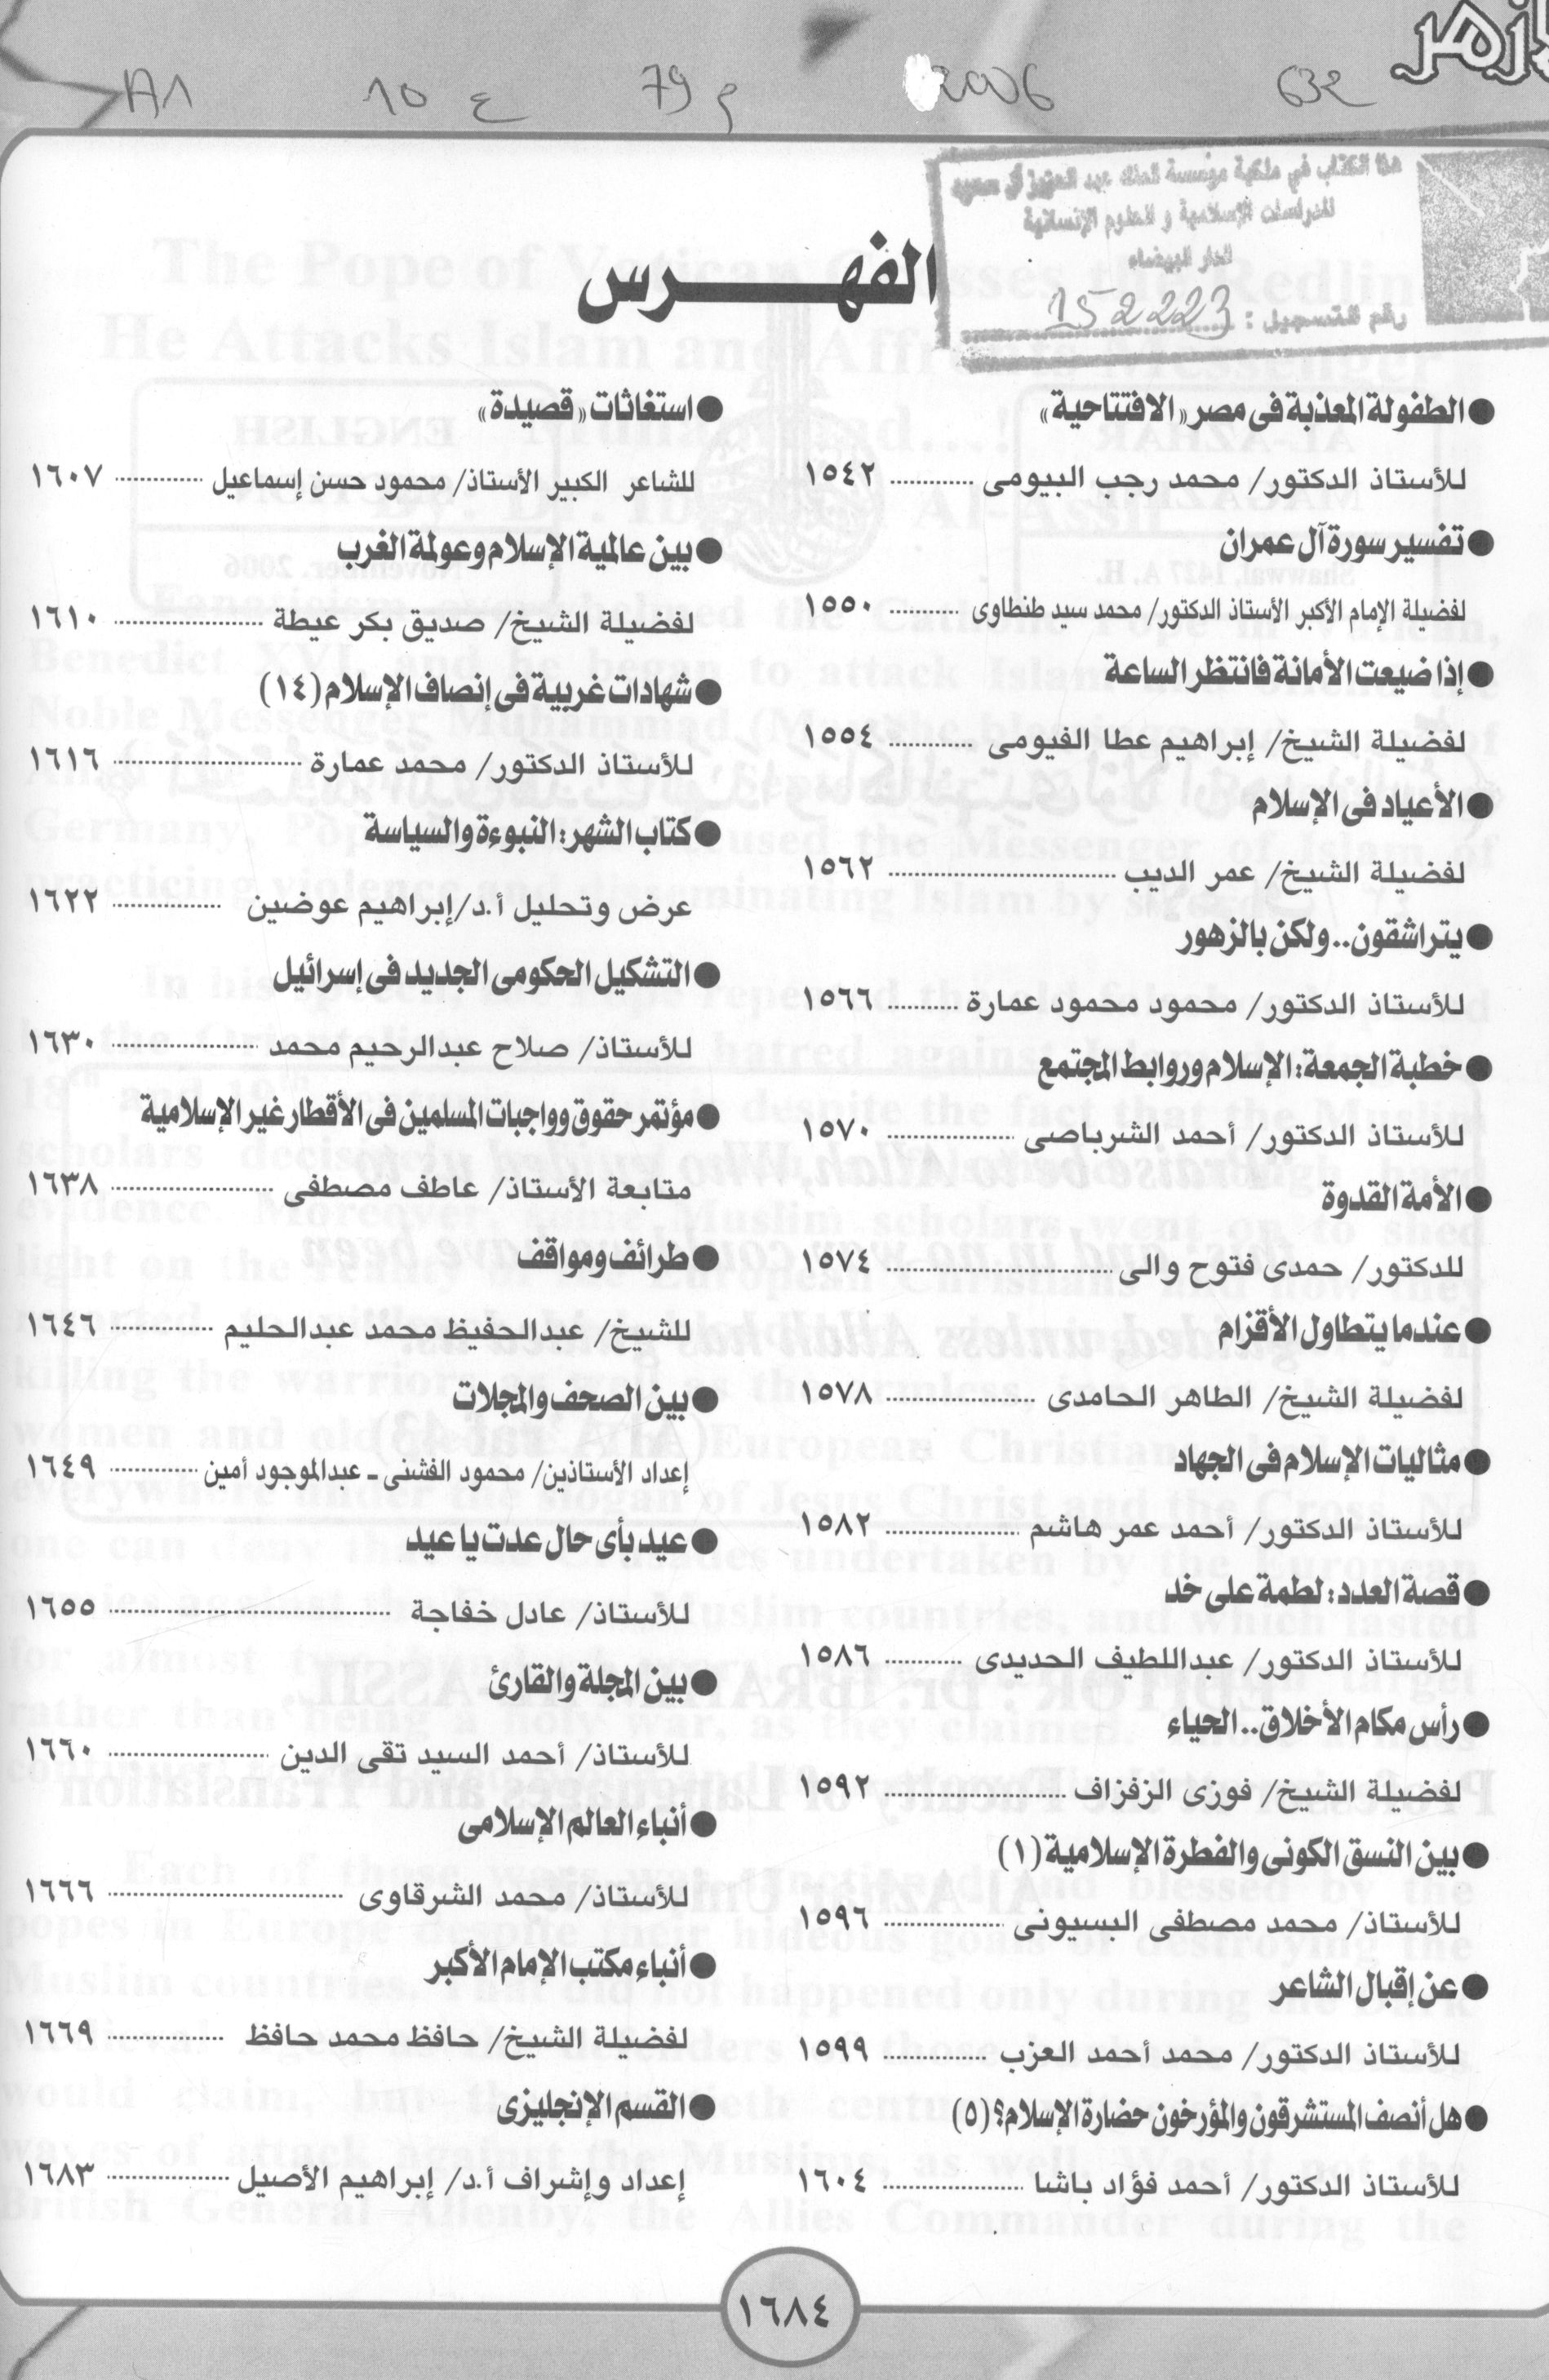 الأزهر
632
2006
79 م
10 ع
A1
هذا الكتاب في ملكية مؤسسة الملك عبد العزيز آل سعود
للدراسات الإسلامية و العلوم الإنسانية
الدار البيضاء
رقم التسجيل : 152223
الفهــرس
● الطفولة المعذبة فى مصر «الافتتاحية»
للأستاذ الدكتور/ محمد رجب البيومى ............ ١٥٤٢
● تفسير سورة آل عمران
لفضيلة الإمام الأكبر الأستاذ الدكتور/ محمد سيد طنطاوى ............ ١٥٥٠
● إذا ضيعت الأمانة فانتظر الساعة
لفضيلة الشيخ/ إبراهيم عطا الفيومى ............ ١٥٥٤
● الأعياد فى الإسلام
لفضيلة الشيخ/ عمر الديب ............ ١٥٦٢
● يتراشقون.. ولكن بالزهور
للأستاذ الدكتور/ محمود محمود عمارة ............ ١٥٦٦
● خطبة الجمعة: الإسلام وروابط المجتمع
للأستاذ الدكتور/ أحمد الشرباصى ............ ١٥٧٠
● الأمة القدوة
للدكتور/ حمدى فتوح والى ............ ١٥٧٤
● عندما يتطاول الأقزام
لفضيلة الشيخ/ الطاهر الحامدى ............ ١٥٧٨
● مثاليات الإسلام فى الجهاد
للأستاذ الدكتور/ أحمد عمر هاشم ............ ١٥٨٢
● قصة العدد: لطمة على خد
للأستاذ الدكتور/ عبداللطيف الحديدى ............ ١٥٨٦
● رأس مكام الأخلاق.. الحياء
لفضيلة الشيخ/ فوزى الزفزاف ............ ١٥٩٢
● بين النسق الكونى والفطرة الإسلامية (١)
للأستاذ/ محمد مصطفى البسيونى ............ ١٥٩٦
● عن إقبال الشاعر
للأستاذ الدكتور/ محمد أحمد العزب ............ ١٥٩٩
● هل أنصف المستشرقون والمؤرخون حضارة الإسلام؟ (٥)
للأستاذ الدكتور/ أحمد فؤاد باشا ............ ١٦٠٤
● استغاثات «قصيدة»
للشاعر الكبير الأستاذ/ محمود حسن إسماعيل ............ ١٦٠٧
● بين عالمية الإسلام وعولمة الغرب
لفضيلة الشيخ/ صديق بكر عيطة ............ ١٦١٠
● شهادات غربية فى إنصاف الإسلام (١٤)
للأستاذ الدكتور/ محمد عمارة ............ ١٦١٦
● كتاب الشهر: النبوءة والسياسة
عرض وتحليل أ.د/إبراهيم عوضين ............ ١٦٢٢
● التشكيل الحكومى الجديد فى إسرائيل
للأستاذ/ صلاح عبدالرحيم محمد ............ ١٦٣٠
● مؤتمر حقوق وواجبات المسلمين فى الأقطار غير الإسلامية
متابعة الأستاذ/ عاطف مصطفى ............ ١٦٣٨
● طرائف ومواقف
للشيخ/ عبدالحفيظ محمد عبدالحليم ............ ١٦٤٦
● بين الصحف والمجلات
إعداد الأستاذين/ محمود الفشنى ـ عبدالموجود أمين ............ ١٦٤٩
● عيد بأى حال عدت يا عيد
للأستاذ/ عادل خفاجة ............ ١٦٥٥
● بين المجلة والقارئ
للأستاذ/ أحمد السيد تقى الدين ............ ١٦٦٠
● أنباء العالم الإسلامى
للأستاذ/ محمد الشرقاوى ............ ١٦٦٦
● أنباء مكتب الإمام الأكبر
لفضيلة الشيخ/ حافظ محمد حافظ ............ ١٦٦٩
● القسم الإنجليزى
إعداد وإشراف أ.د/ إبراهيم الأصيل ............ ١٦٨٣
١٦٨٤